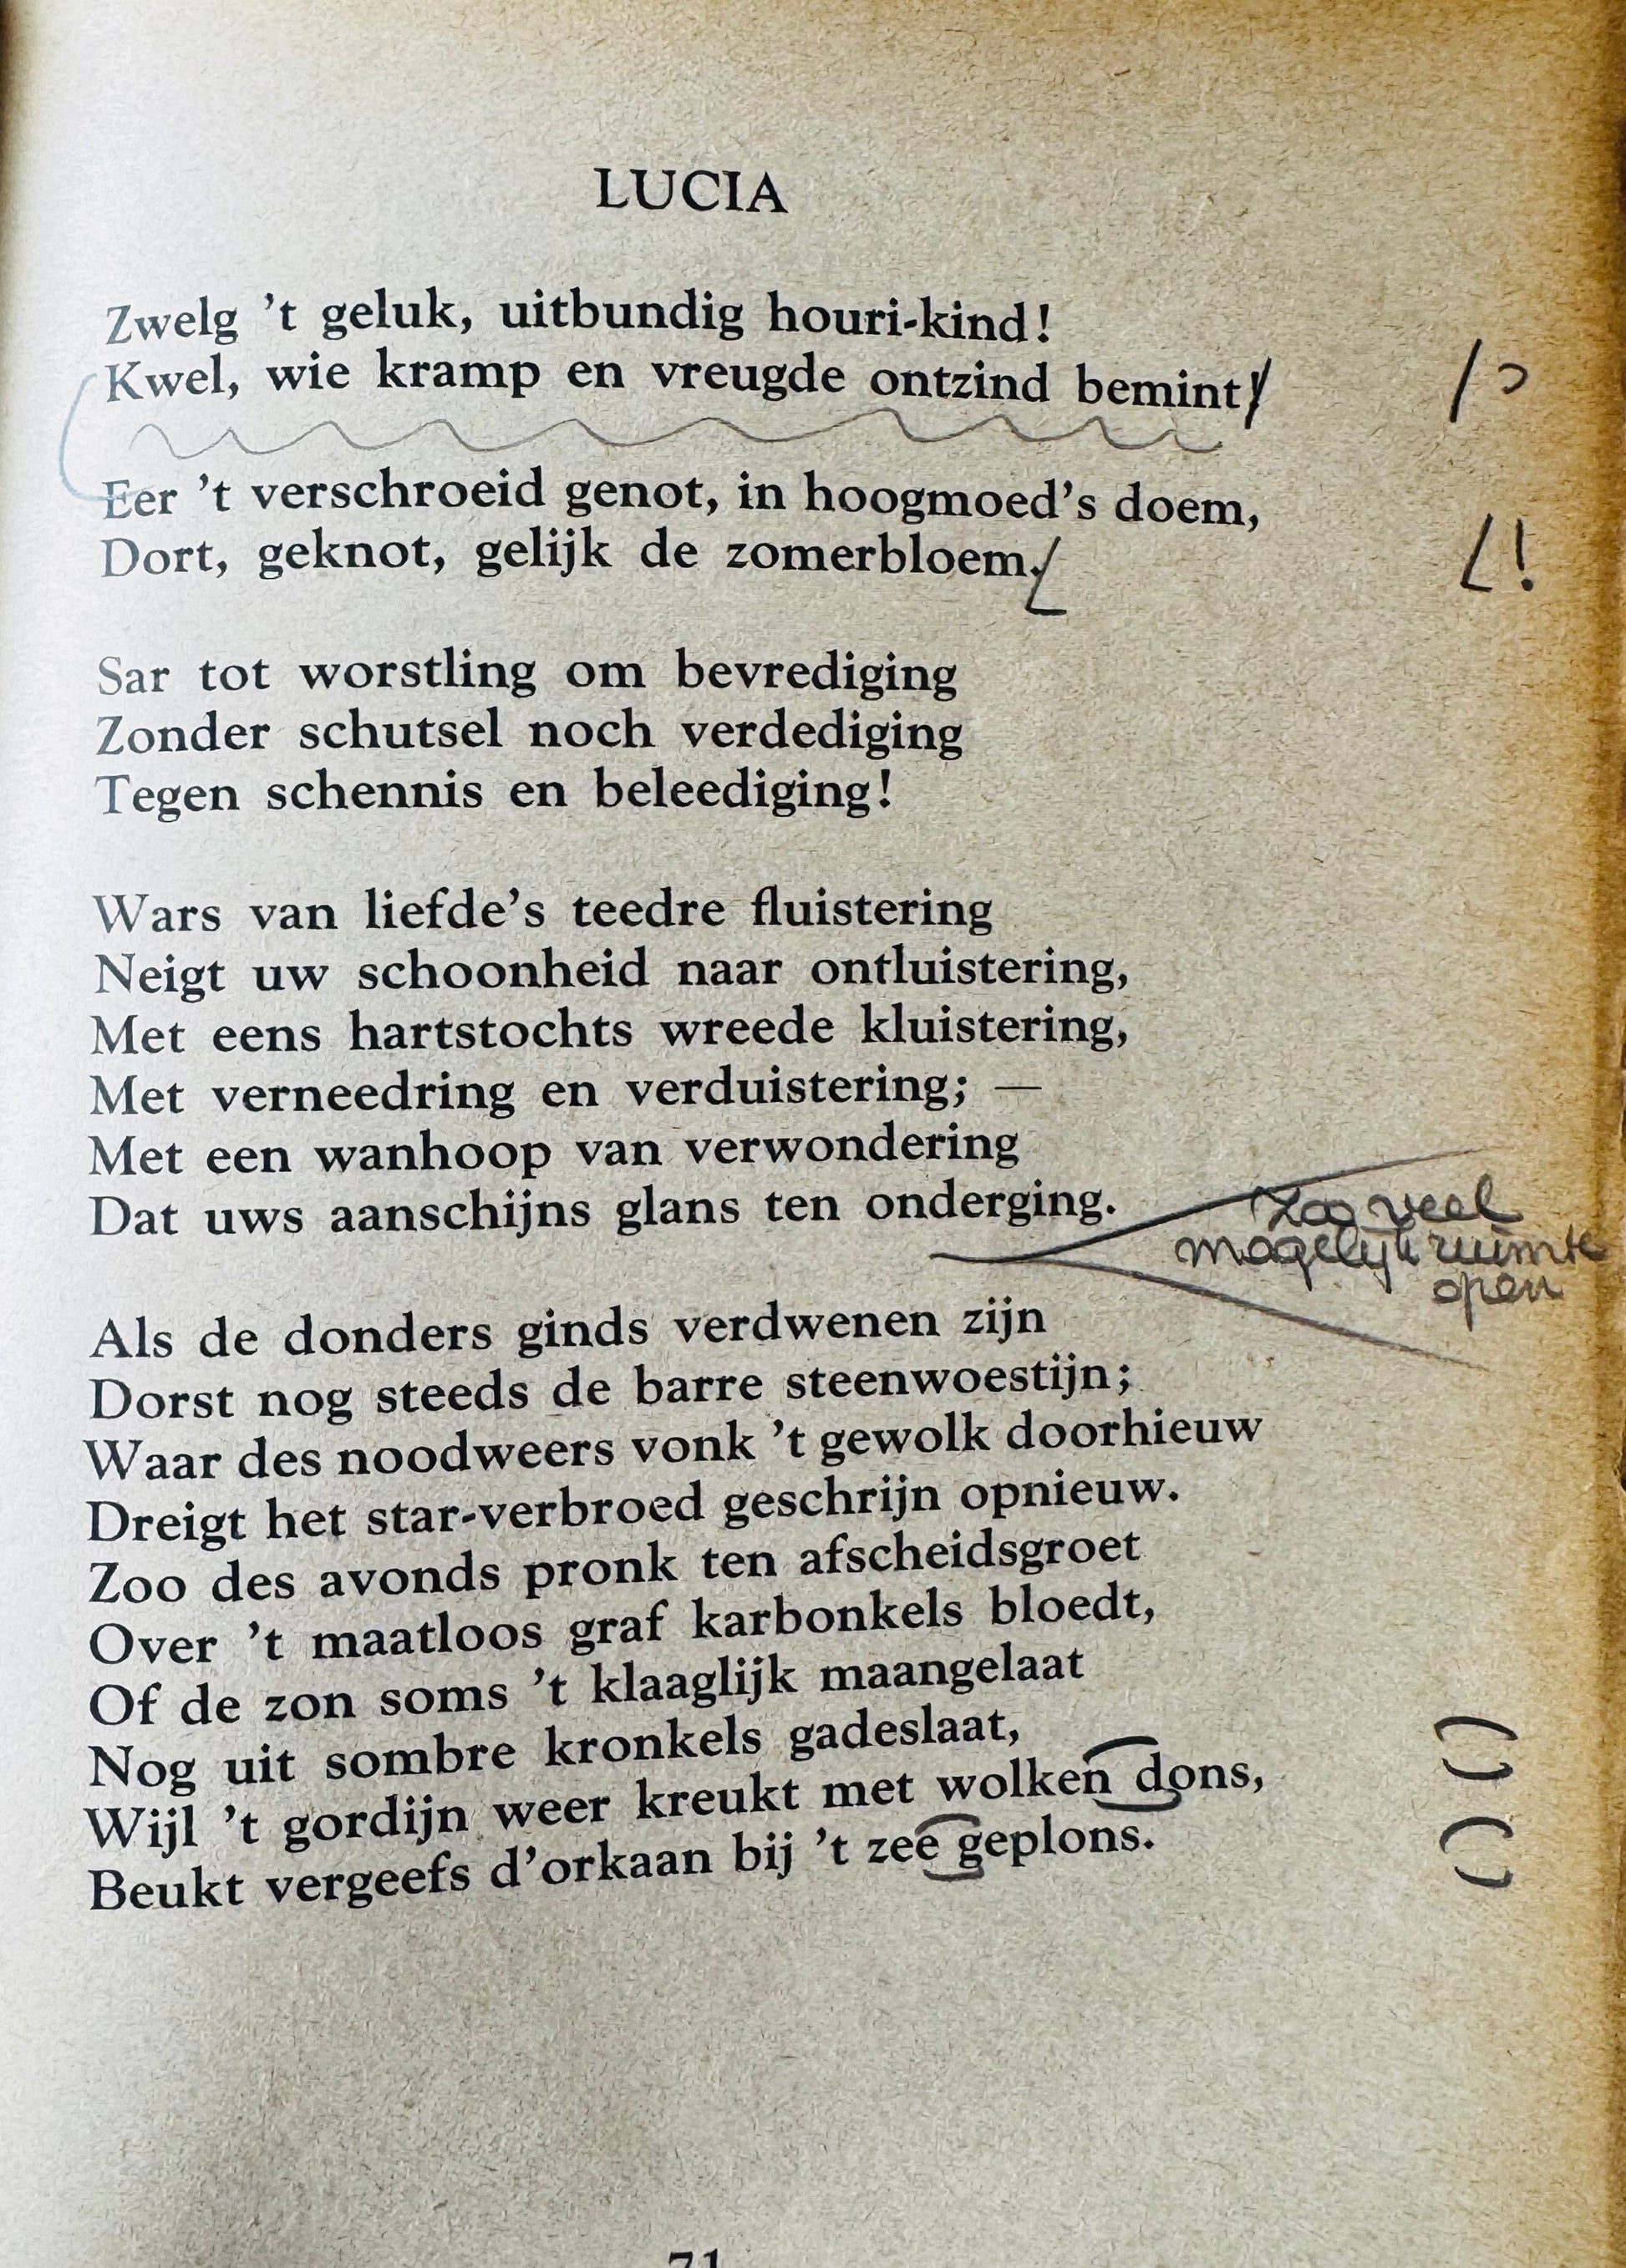 LUCIA
Zwelg 't geluk, uitbundig houri-kind!
Kwel, wie kramp en vreugde ontzind bemint
Eer 't verschroeid genot, in hoogmoed's doem,
Dort, geknot, gelijk de zomerbloem.
!
Sar tot worstling om bevrediging
Zonder schutsel noch verdediging
Tegen schennis en beleediging!
Wars van liefde's teedre fluistering
Neigt uw schoonheid naar ontluistering,
Met eens hartstochts wreede kluistering,
Met verneedring en verduistering; —
Met een wanhoop van verwondering
Dat uws aanschijns glans ten onderging.
Zoo veel
mogelijk ruimte
open
Als de donders ginds verdwenen zijn
Dorst nog steeds de barre steenwoestijn;
Waar des noodweers vonk 't gewolk doorhieuw
Dreigt het star-verbroed geschrijn opnieuw.
Zoo des avonds pronk ten afscheidsgroet
Over 't maatloos graf karbonkels bloedt,
Of de zon soms 't klaaglijk maangelaat
Nog uit sombre kronkels gadeslaat,
Wijl 't gordijn weer kreukt met wolken dons,
Beukt vergeefs d'orkaan bij 't zee geplons.
71